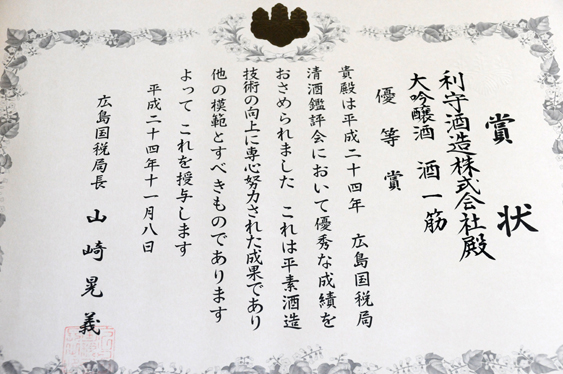 賞状
利守酒造株式会社殿
大吟醸酒 酒一筋
優等賞
貴殿は平成二十四年 広島国税局
清酒鑑評会において優秀な成績を
おさめられました これは平素酒造
技術の向上に専心努力された成果であり
他の模範とすべきものであります
よって これを授与します
平成二十四年十一月八日
広島国税局長 山崎晃義